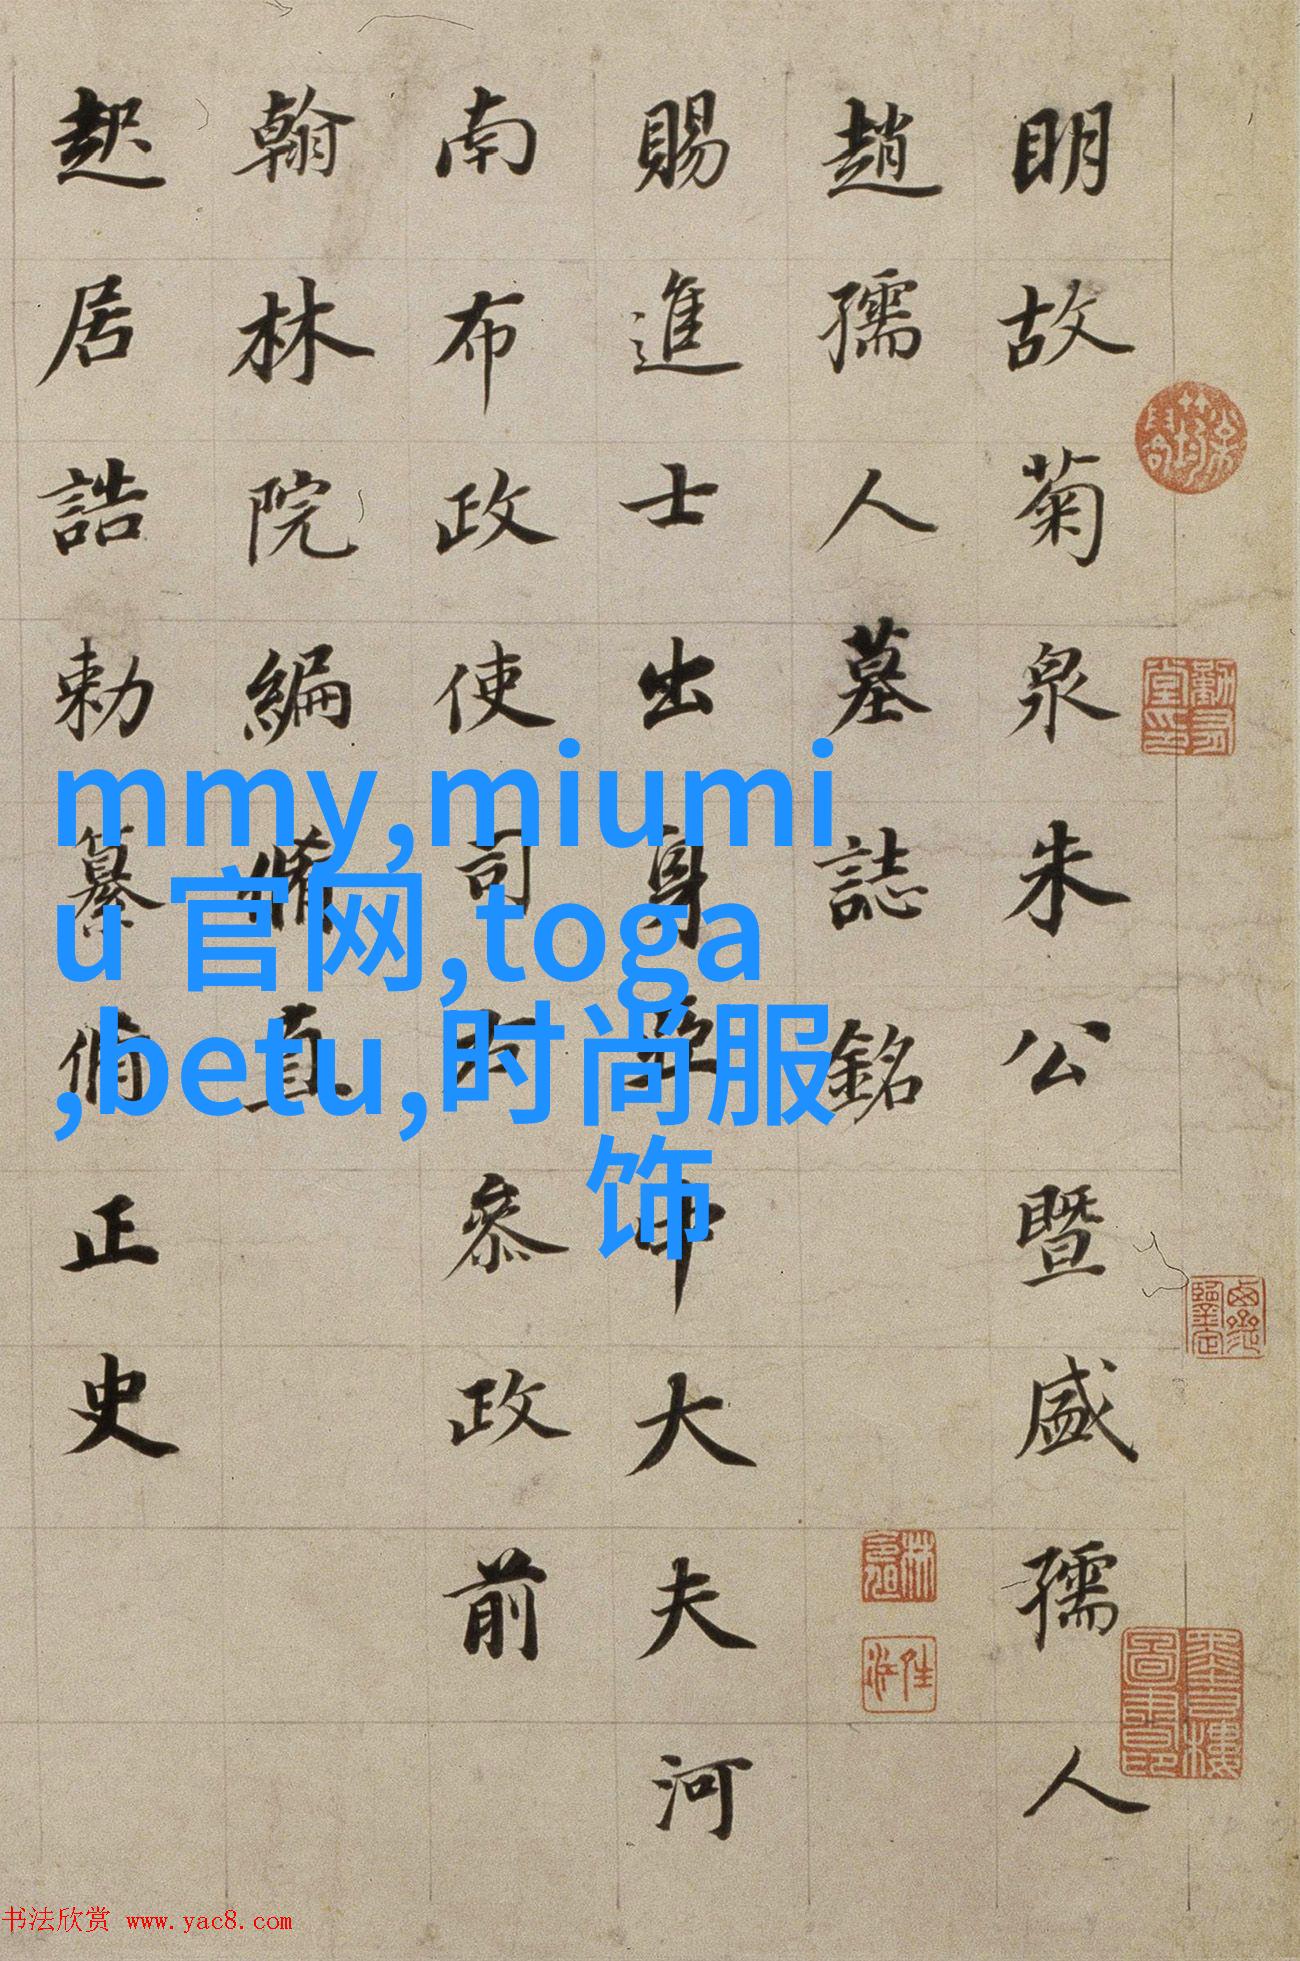 明故菊泉朱公暨盛孺人
趙孺人墓誌銘
賜進士出身亞中大夫河
南布政使司右參政前
翰林院編脩直
起居誥勅纂脩正史
mmy,miumi
u 官网,toga
,betu,时尚服
饰
书法欣赏 www.yac8.com